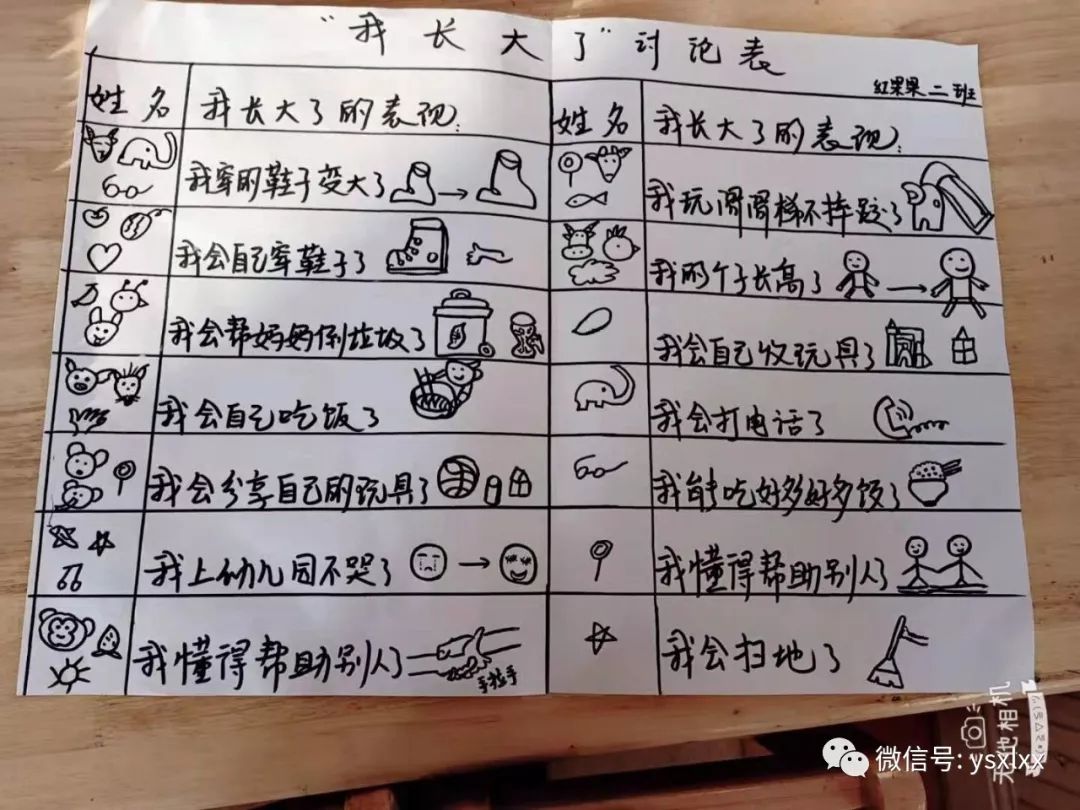 “我长大了”讨论表
红果果二班
姓名
我长大了的表现:
我穿的鞋子变大了
我会自己穿鞋子了
我会帮妈妈倒垃圾了
我会自己吃饭了
我会分享自己的玩具了
我上幼儿园不哭了
我懂得帮助别人了
手拉手
姓名
我长大了的表现:
我玩滑滑梯不摔跤了
我的个子长高了
我会自己收玩具了
我会打电话了
我能吃好多好多饭了
我懂得帮助别人了
我会扫地了
无他相机
微信号: ysxlxx